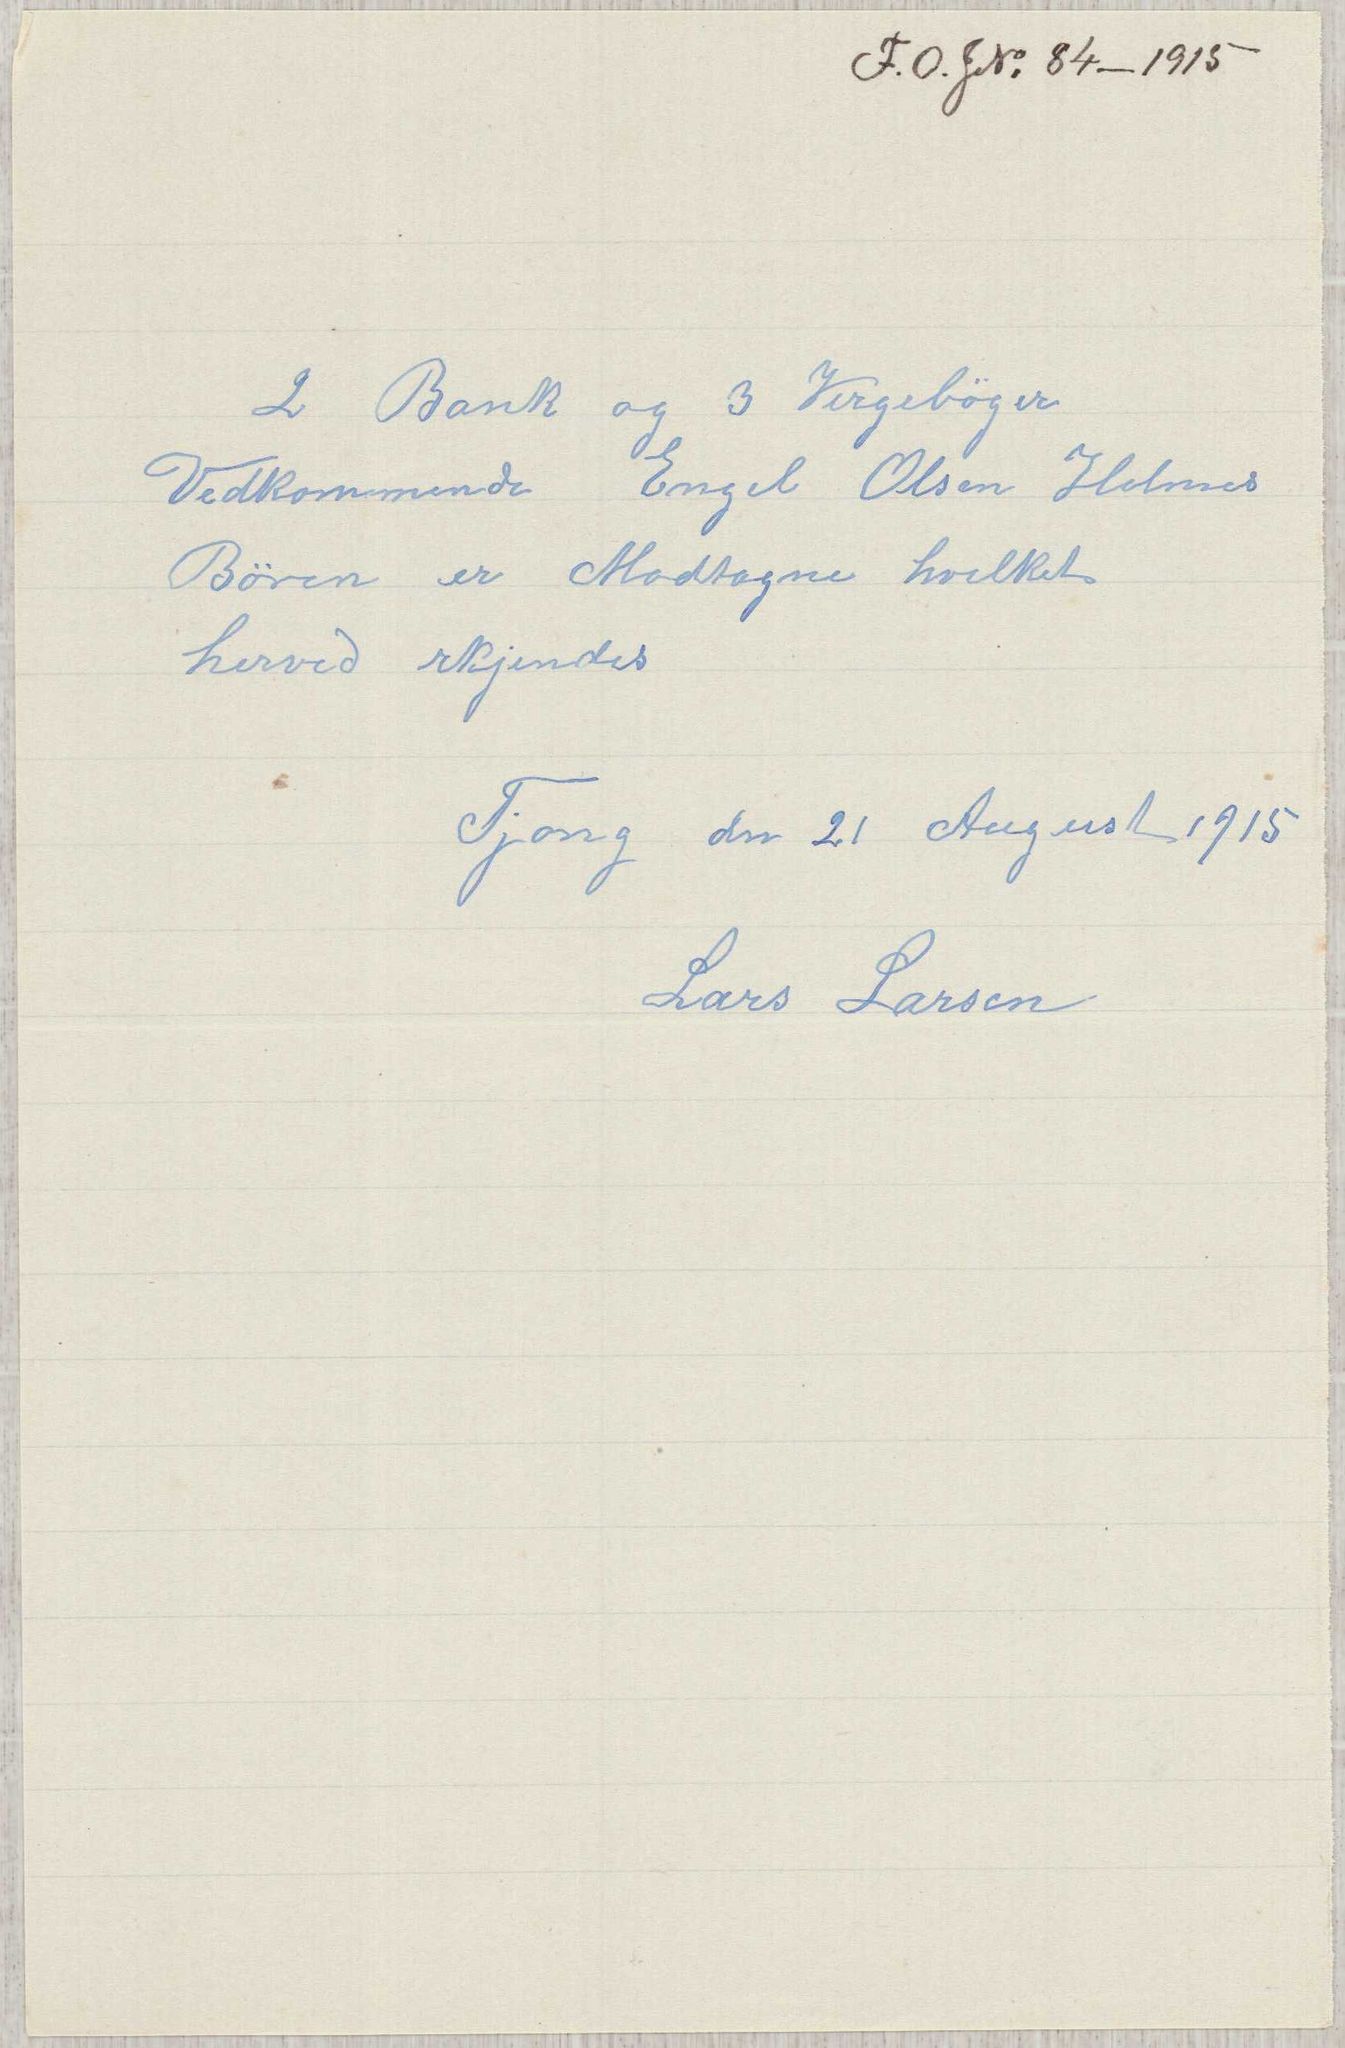 F.O.JNo. 84–1915
2 Bank og 3 Vergeböger
Vedkommende Engel Olsen Helnes
Bören er Modtagne hvilket
herved erkjendes
Tjong den 21 August 1915
Lars Larsen